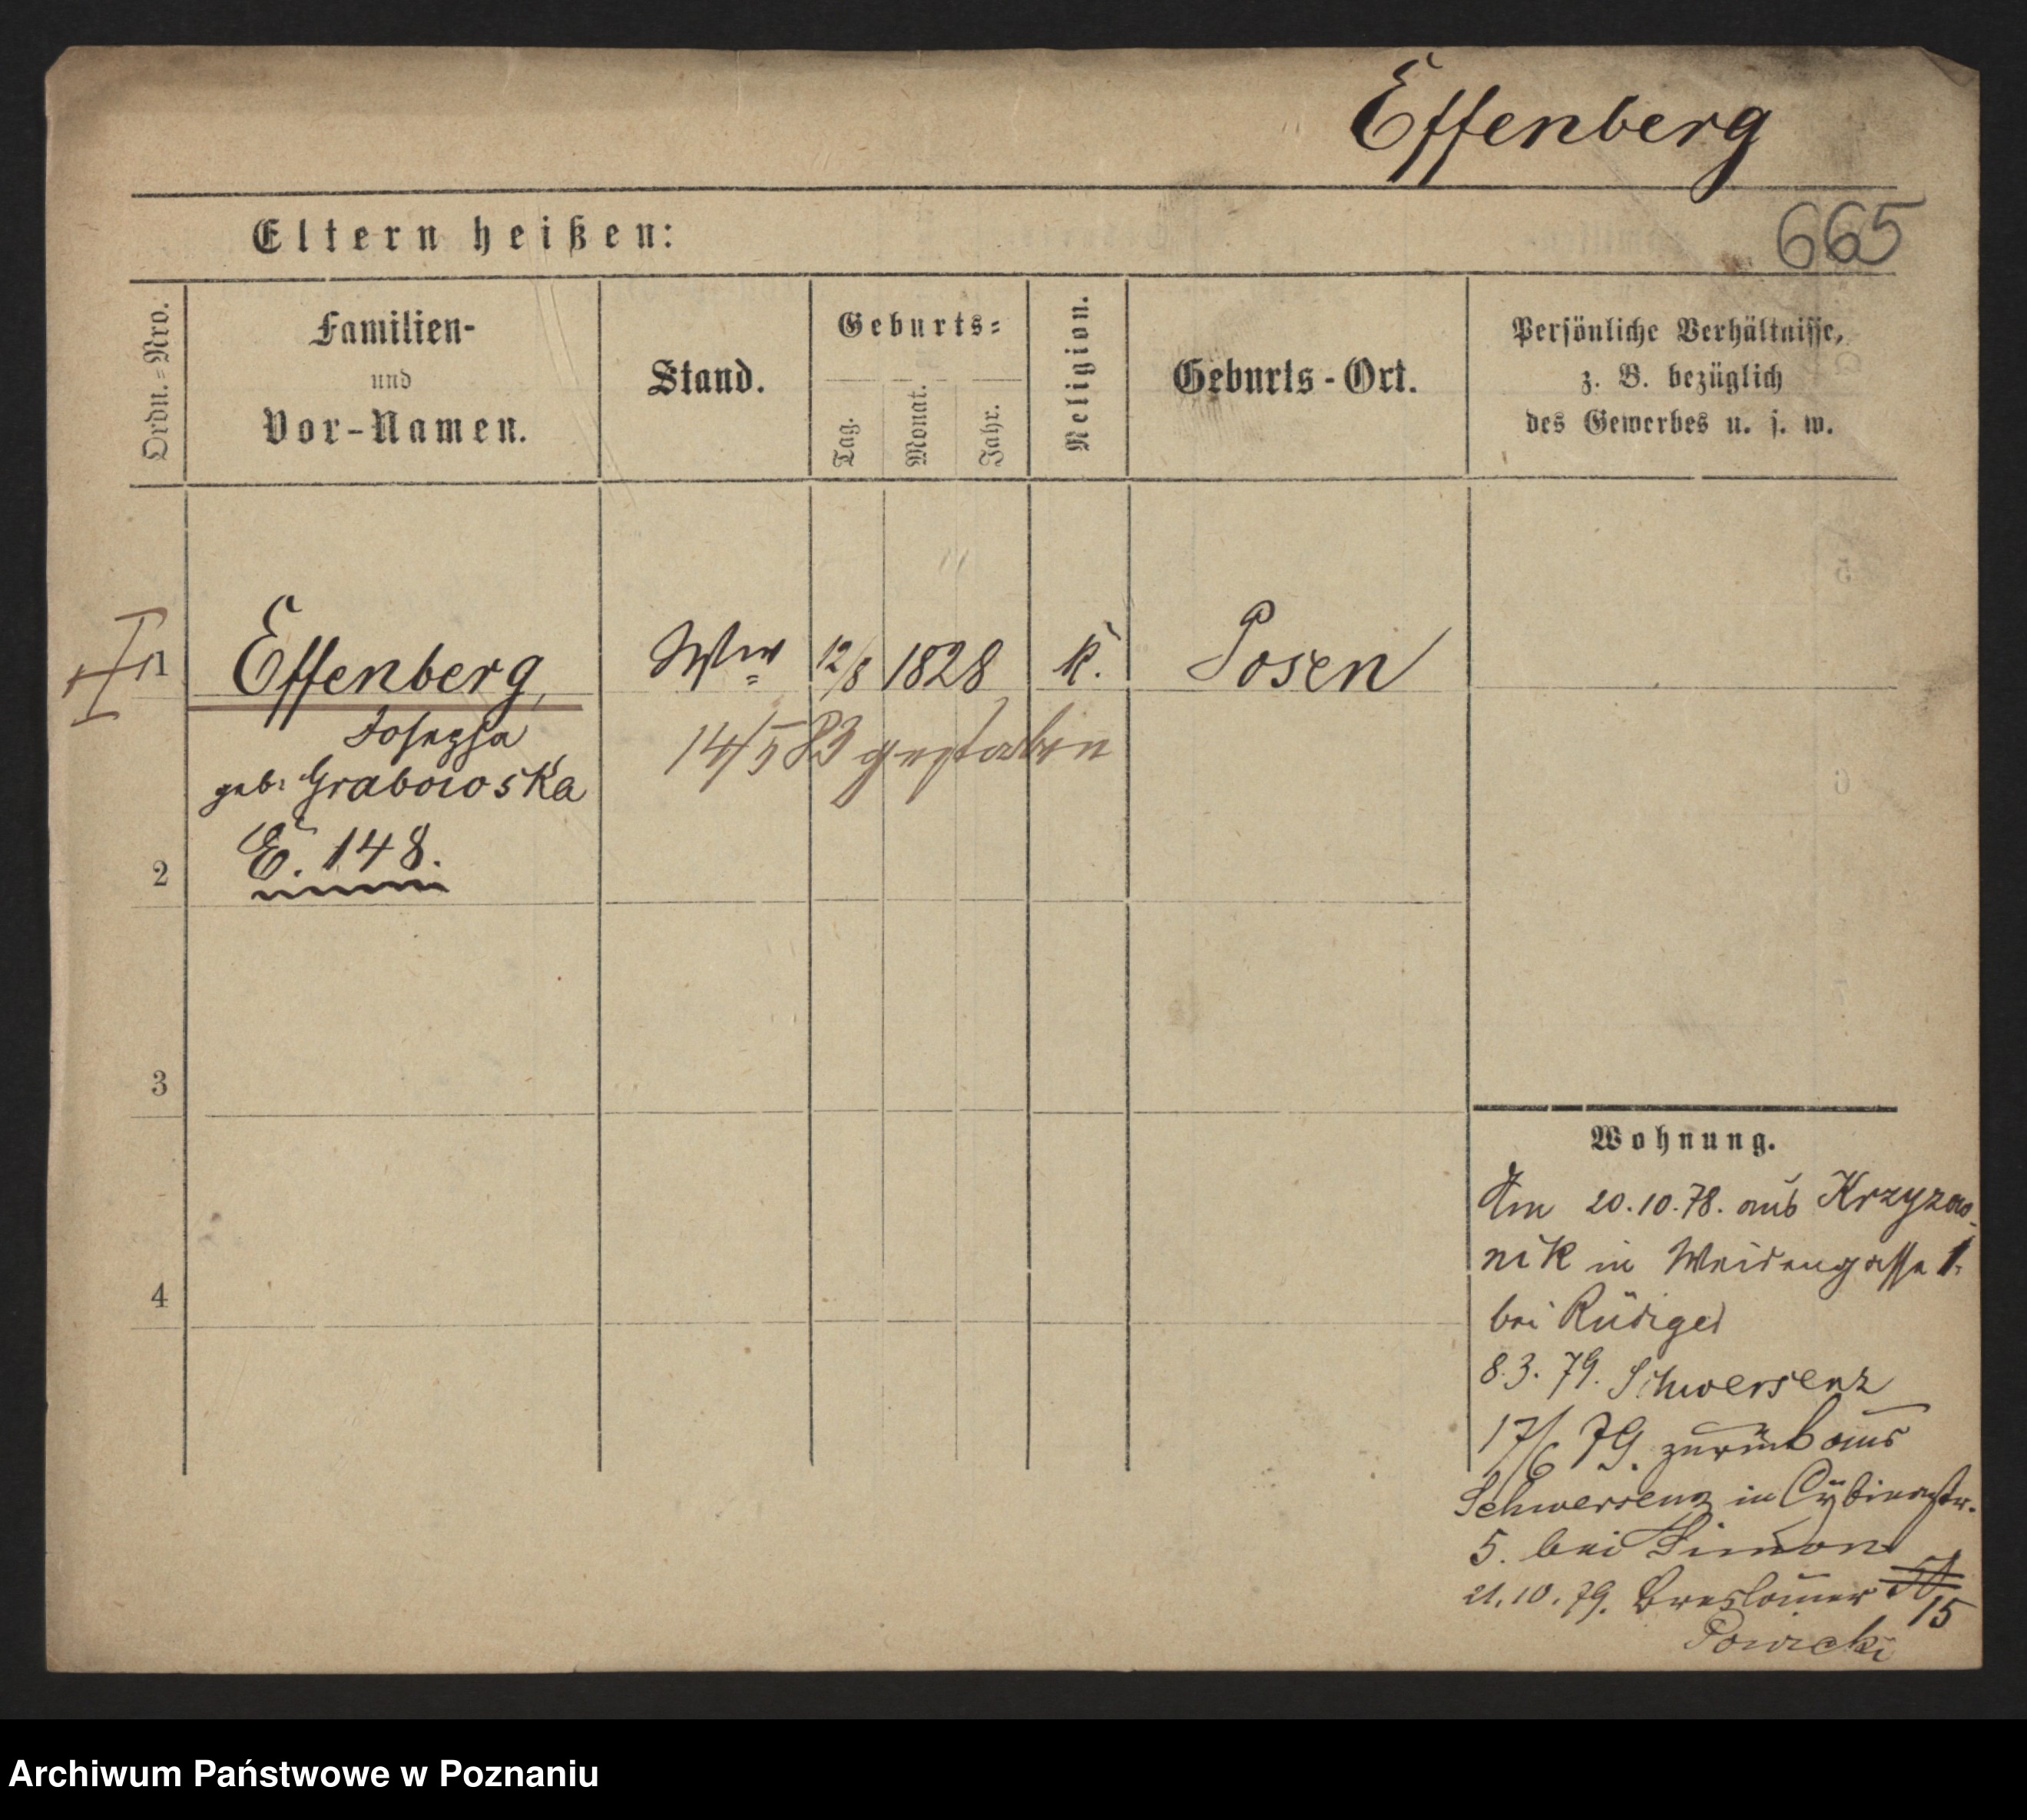 Effenberg
665
Eltern heißen:
Ordn.=Nro.
Familien-
und
Vor-Namen.
Stand.
Geburts=
Tag.
Monat.
Jahr.
Religion.
Geburts-Ort.
Persönliche Verhältnisse,
z. B. bezüglich
des Gewerbes u. s. w.
1 Effenberg, Ww 12/8 1828 k. Posen
Josepha
14/5 83 gestorben
geb. Grabowska
E. 148.
2
3
4
Wohnung.
Am 20.10.78. aus Krzyzow-
nik in Weidengasse 1.
bei Rüdiger
8.3.79. Schwersenz
17/6 79. zurück aus
Schwersenz in Cybinastr.
5. bei Simon
21.10.79. Breslauer
15
Archiwum Państwowe w Poznaniu